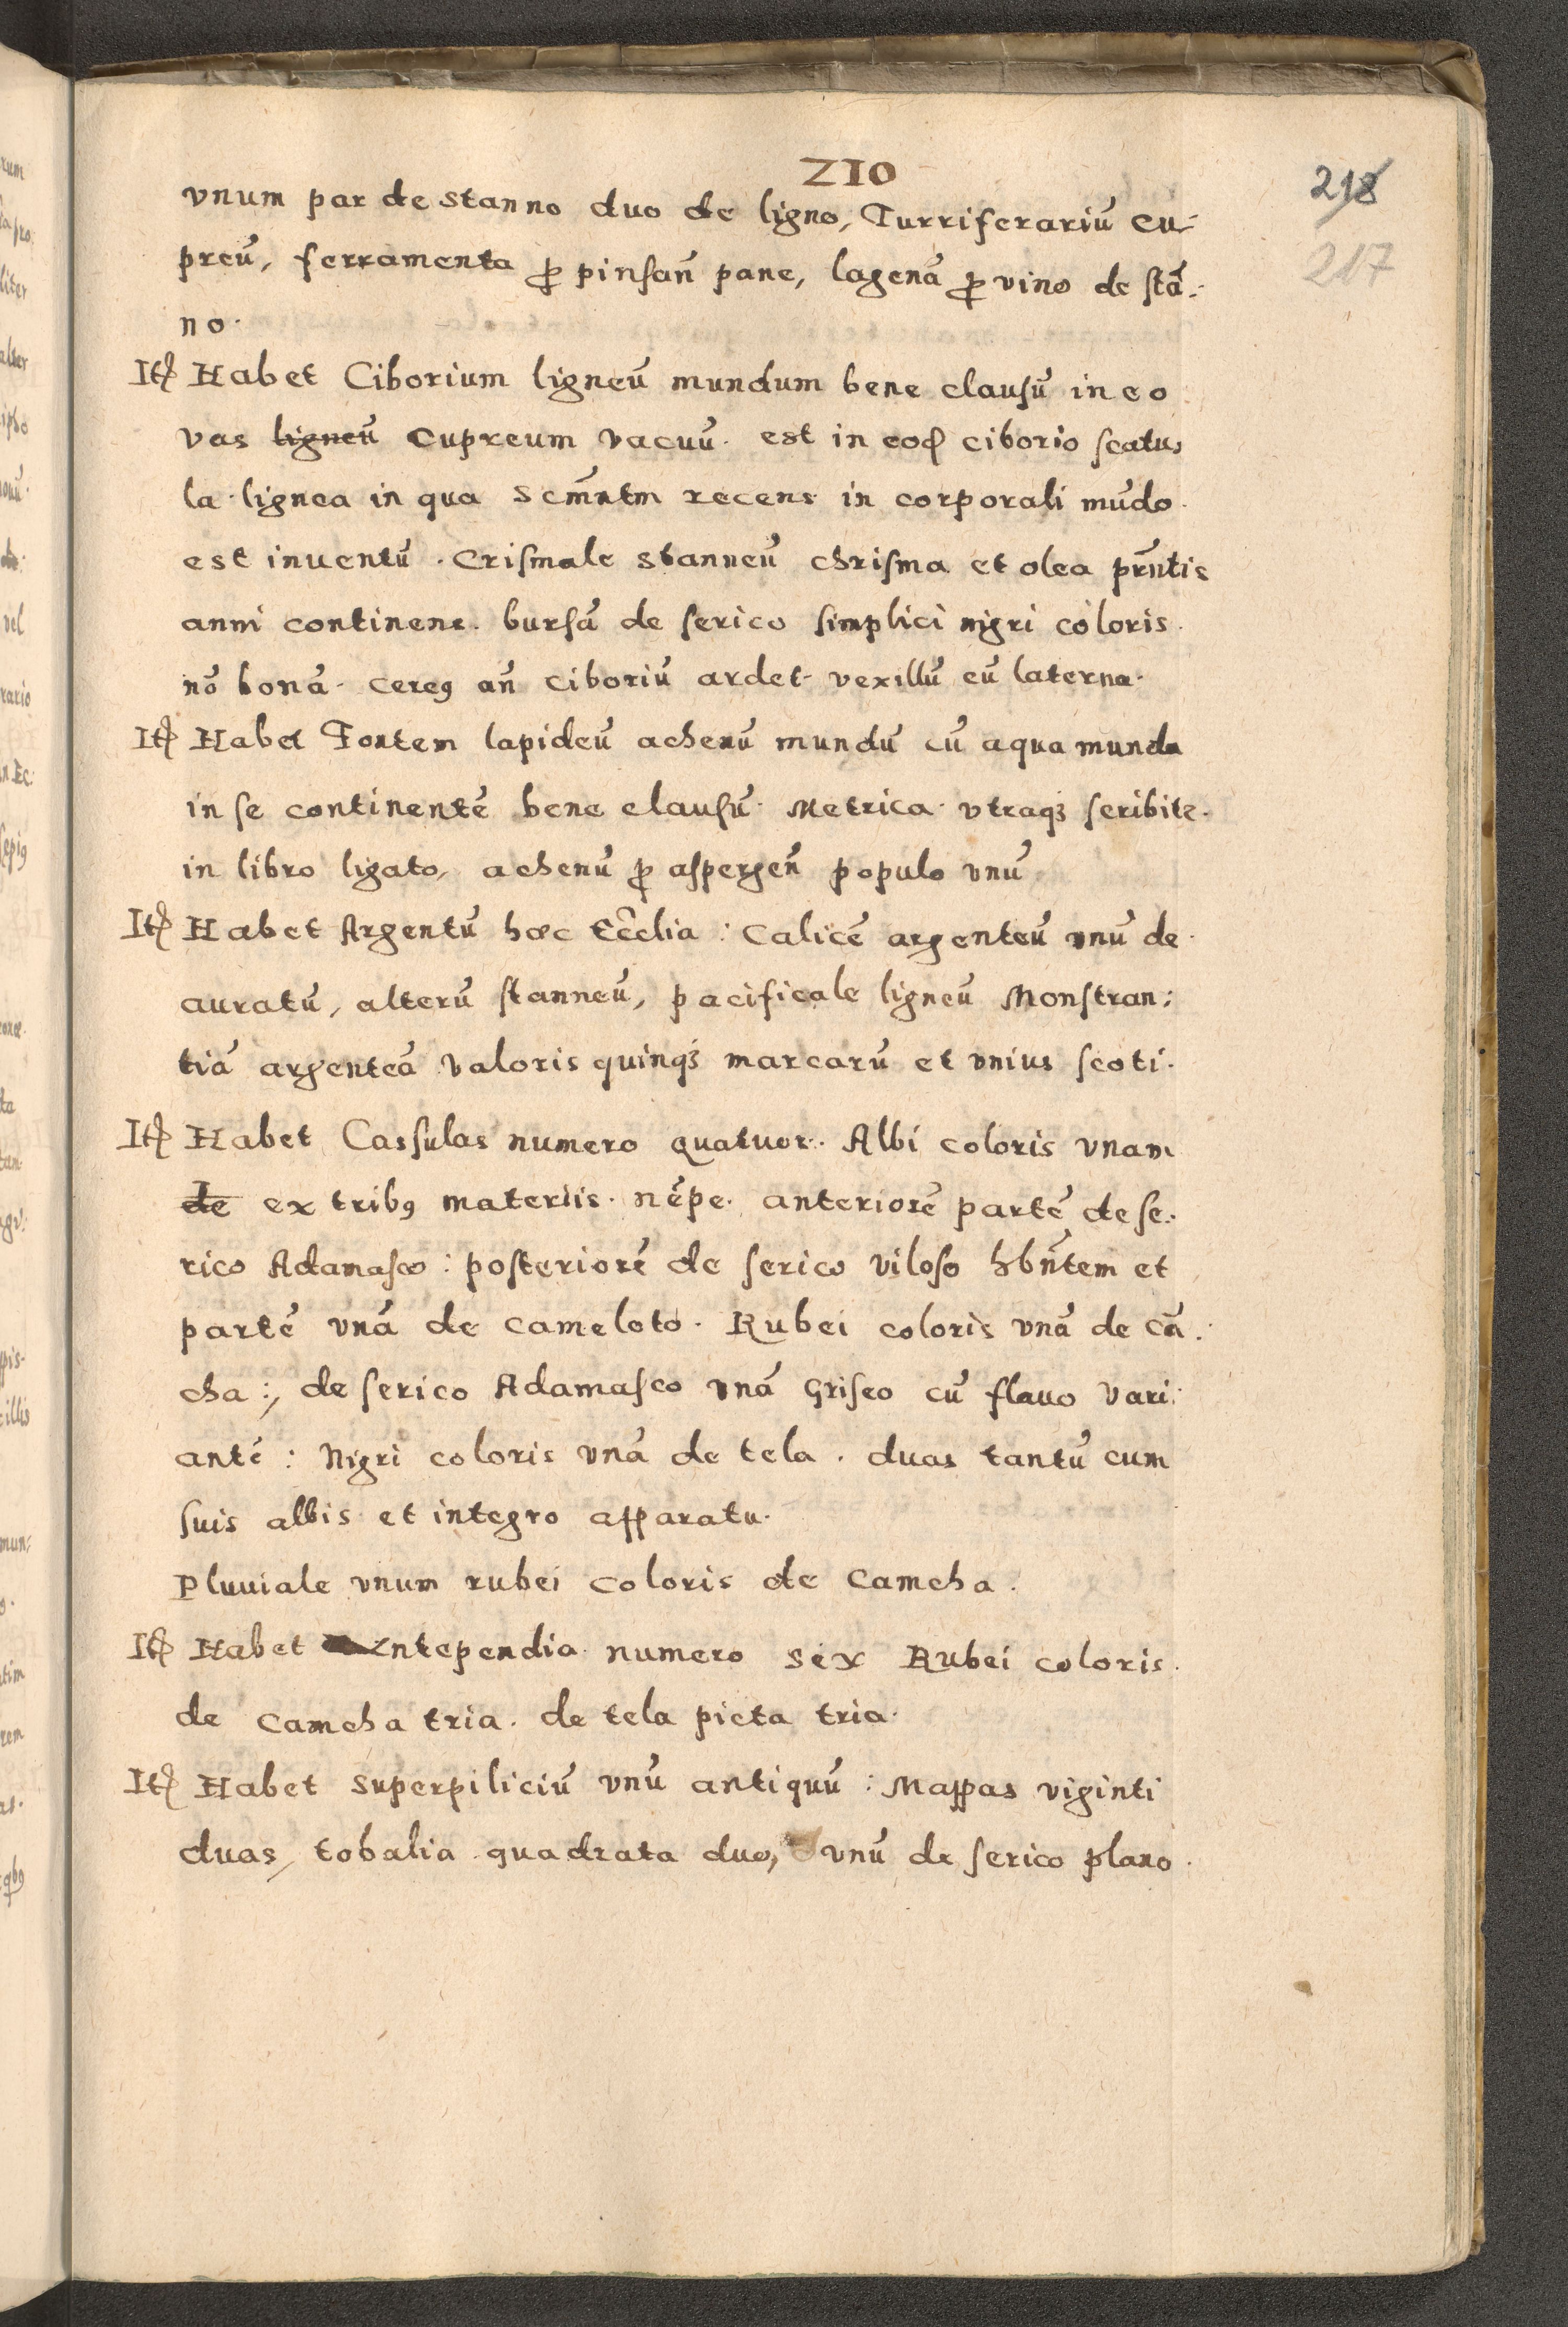 210
218
217
vnum par de stanno duo de ligno, Turriferariū cu-
preū, ferramenta ꝑ pinsan̄ pane, lagenā ꝑ vino de stā:
no.
Itꝭ Habet Ciborium ligneū mundum bene clausū in eo
vas ligneū cupreum vacuū. est in eod ciborio scatu
la lignea in qua Scm̄ntm recens in corporali mūdo.
est inuentū. Crismale stanneū chrisma et olea prn̄tis
anni continens. bursā de serico simplici nigri coloris.
nō bonā. cereꝯ an̄ ciboriū ardet. vexillū cū laterna.
Itꝭ Habet Fontem lapideū achenū mundū cū aqua munda
in se continentē bene clausū. Metrica vtraqꝫ scribitr.
in libro ligato, achenū ꝑ aspergen̄ populo vnū
Itꝭ Habet Argentū hæc Eccl̄ia: Calicē argenteū vnū de.
auratū, alterū stanneū, pacificale ligneū Monstran:
tiā argenteā valoris quinqꝫ marcarū et vnius scoti.
Itꝭ Habet Cassulas numero quatuor. Albi coloris vnam
de ex tribꝯ materiis. nēpe. anteriorē partē de se:
rico Adamasco: posteriorē de serico viloso hbn̄tem et
partē vnā de cameloto. Rubei coloris vnā de cā.
cha:, de serico Adamasco vnā griseo cū flauo vari:
antē: Nigri coloris vnā de tela. duas tantū cum
suis albis et integro apparatu.
Pluuiale vnum rubei coloris de Camcha.
Itꝭ Habet Antependia numero sex Rubei coloris.
de Camcha tria. de tela picta tria.
Itꝭ Habet superpiliciū vnū antiquū: Mappas viginti
duas, tobalia quadrata duo, vnū de serico plano.